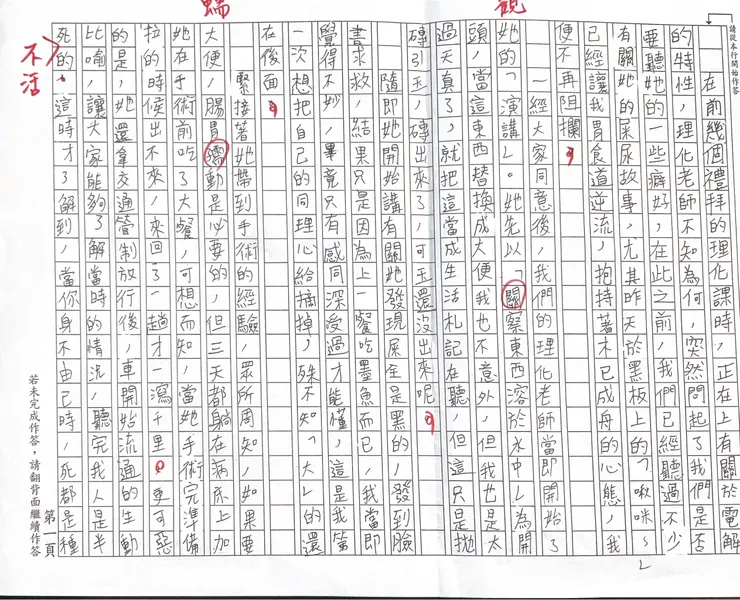 請從本行開始作答
在前幾個禮拜的理化課時，正在上有關於電解
的特性，理化老師不知為何，突然問起了我們是否
要聽她的一些癖好，在此之前，我們已經聽過不少
有關她的屎尿故事，尤其昨天於黑板上的「啾咪~」
已經讓我胃食道逆流，抱持著木已成舟的心態，我
便不再阻攔。
一經大家同意後，我們的理化老師當即開始了
她的「演講」。她先以「關察東西溶於水中」為開
頭，當這東西替換成大便我也不意外，但我也是太
過天真了，就把這當成生活札記在聽，但這只是拋
磚引玉，磚出來了，可玉還沒出來呢。
隨即她開始講有關她發現屎全是黑的，發到臉
書求救，結果只是因為上一餐吃墨魚而已，我當即
覺得不妙，畢竟只有感同深受過才能懂，這是我第
一次想把自己的同理心給摘掉，殊不知「大」的還
在後面。
緊接著她帶到手術的經驗，眾所周知，如果要
大便，腸胃蠕動是必要的，但三天都躺在病床上加
她在手術前吃了大餐，可想而知，當她手術完準備
拉的時候出不來，來回了一趟才一瀉千里。更可惡
的是，她還拿交通管制放行後，車開始流通的生動
比喻，讓大家能夠了解當時的情況，聽完我人是半
死的，這時才了解到，當你身不由己時，死都是種
觀
蠕
不活
第一頁
若未完成作答，請翻背面繼續作答